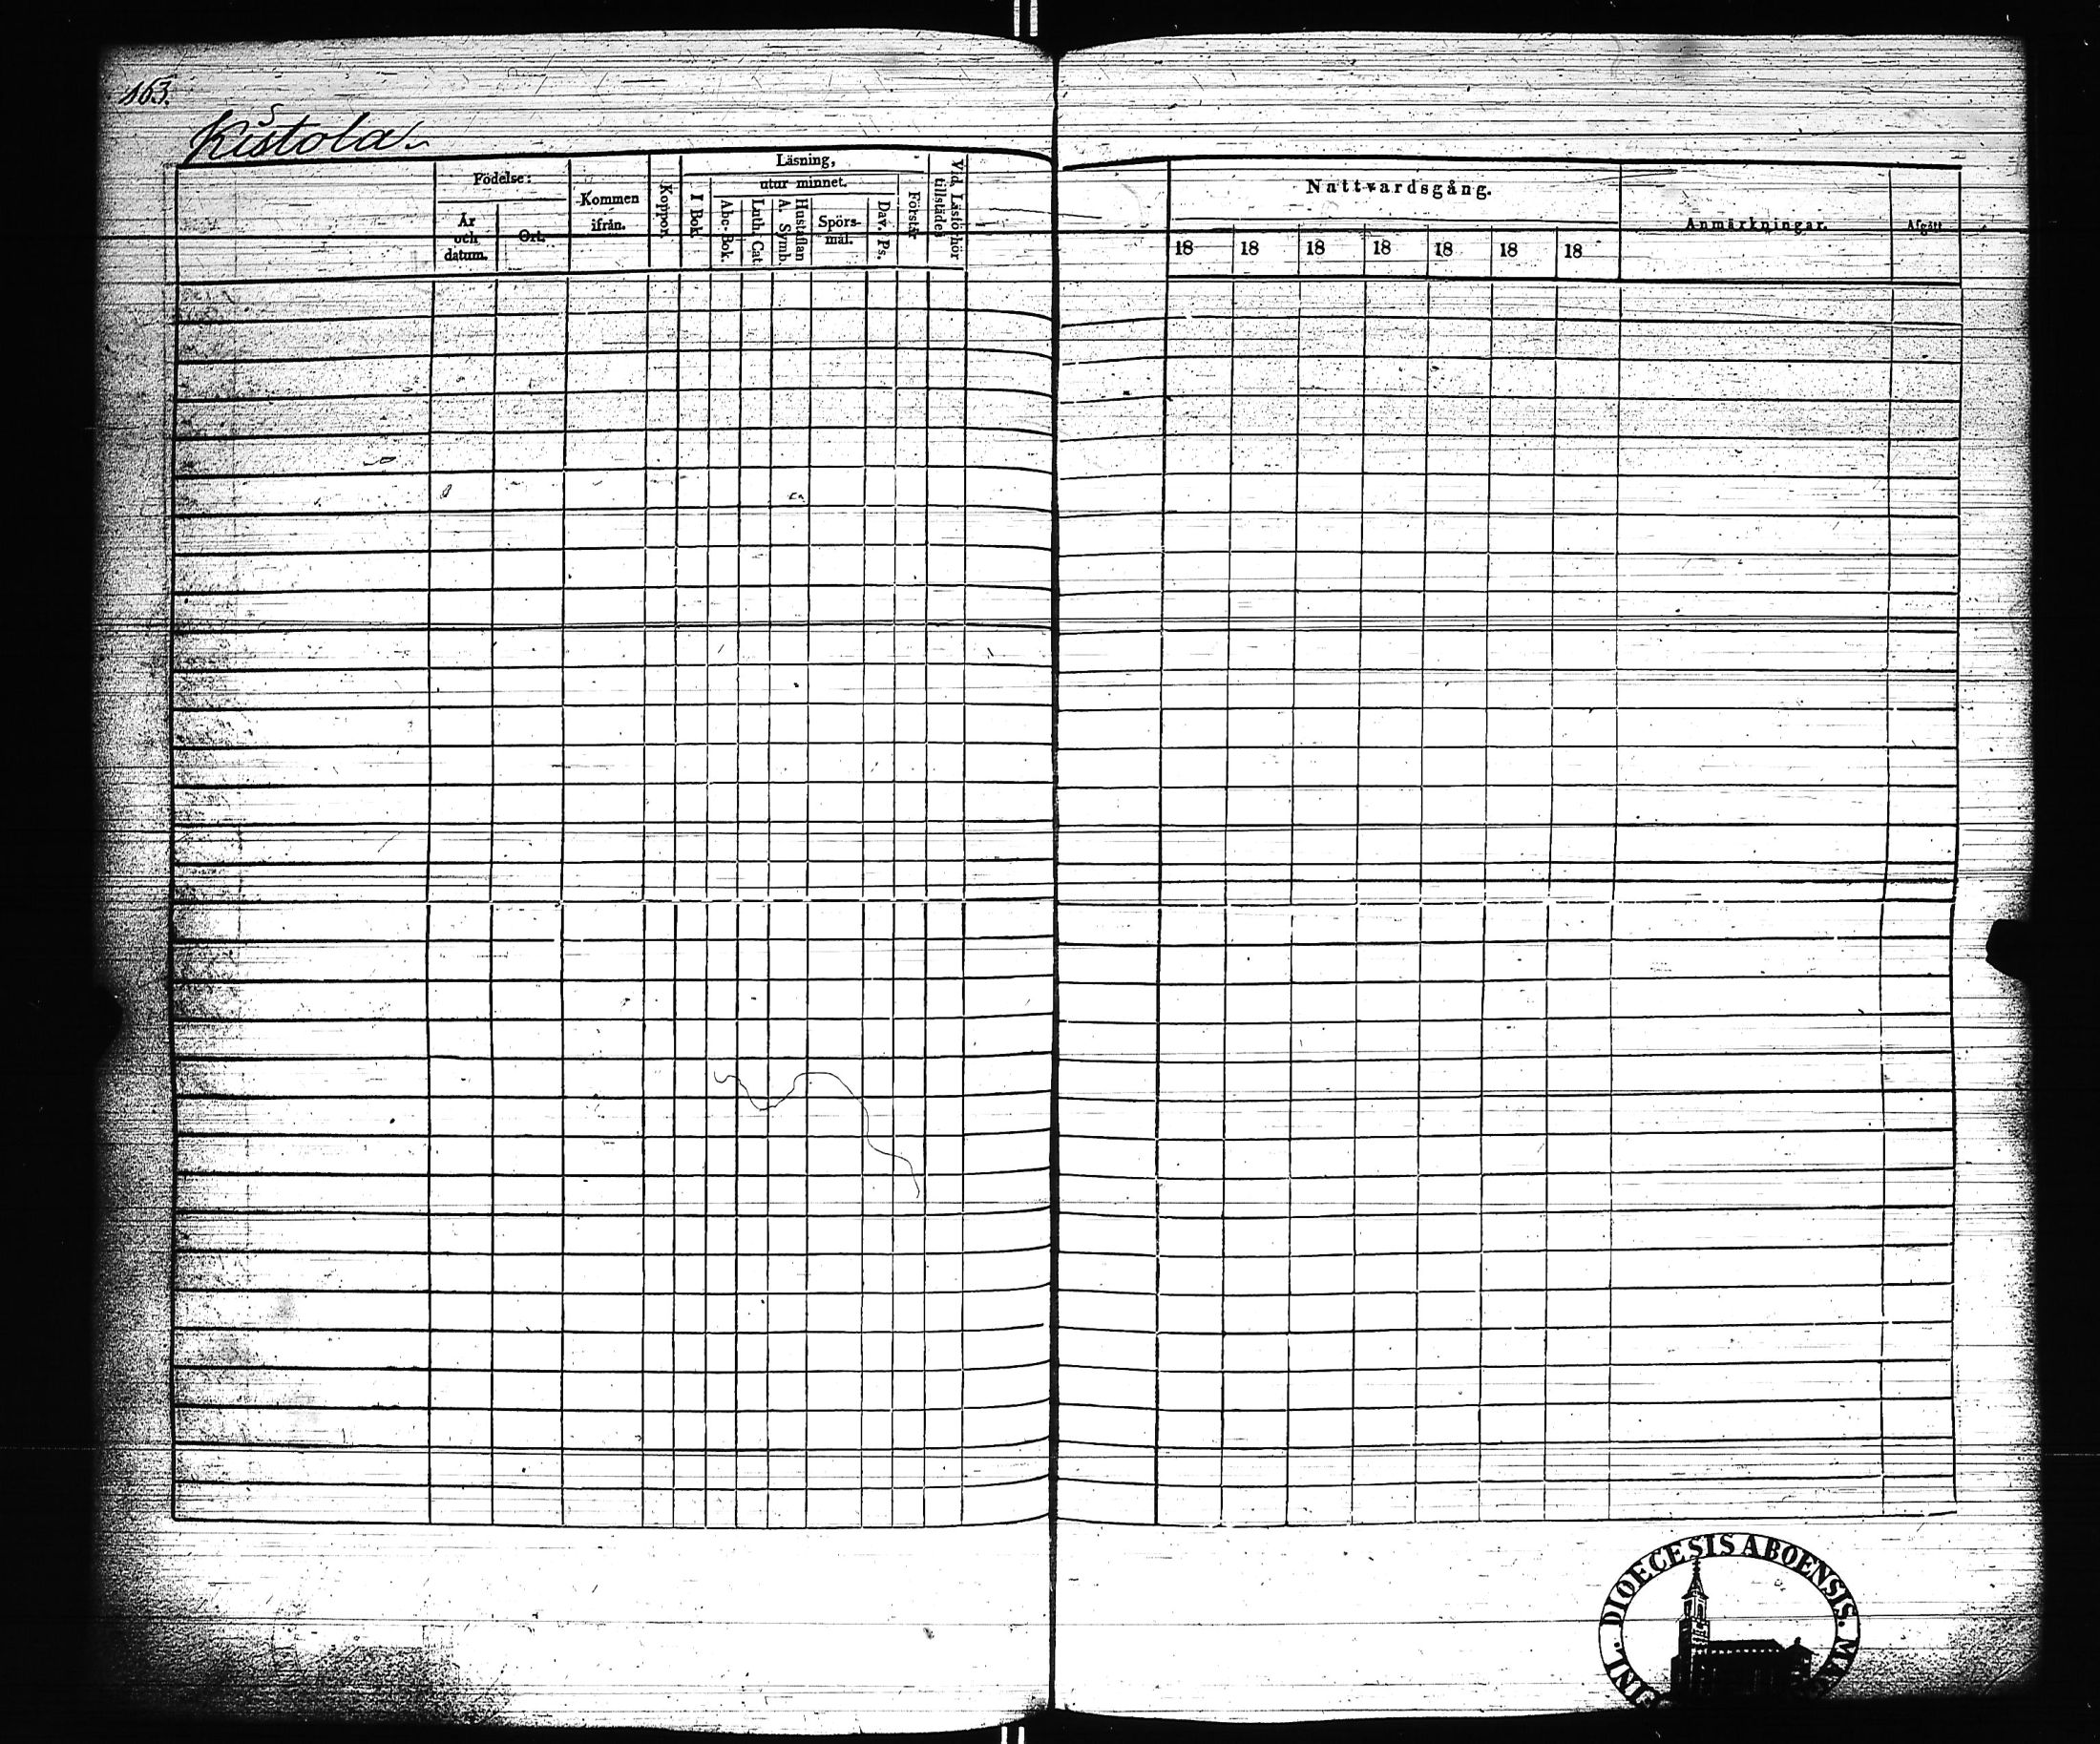 163.
Kistola
Födelse:
År
och
datum.
Ort.
Kommen
ifrån.
Koppor.
Läsning,
utur minnet.
I Bok.
Abc-Bok.
Luth. Cat.
Hustaflan
A. Symb.
Spörs-
mål.
Dav. Ps.
Förstår
Vid Läsförhör
tillstädes
Nattvardsgång.
18 18 18 18 18 18 18
Anmärkningar.
Afgått
DIOECESIS ABOENSIS.